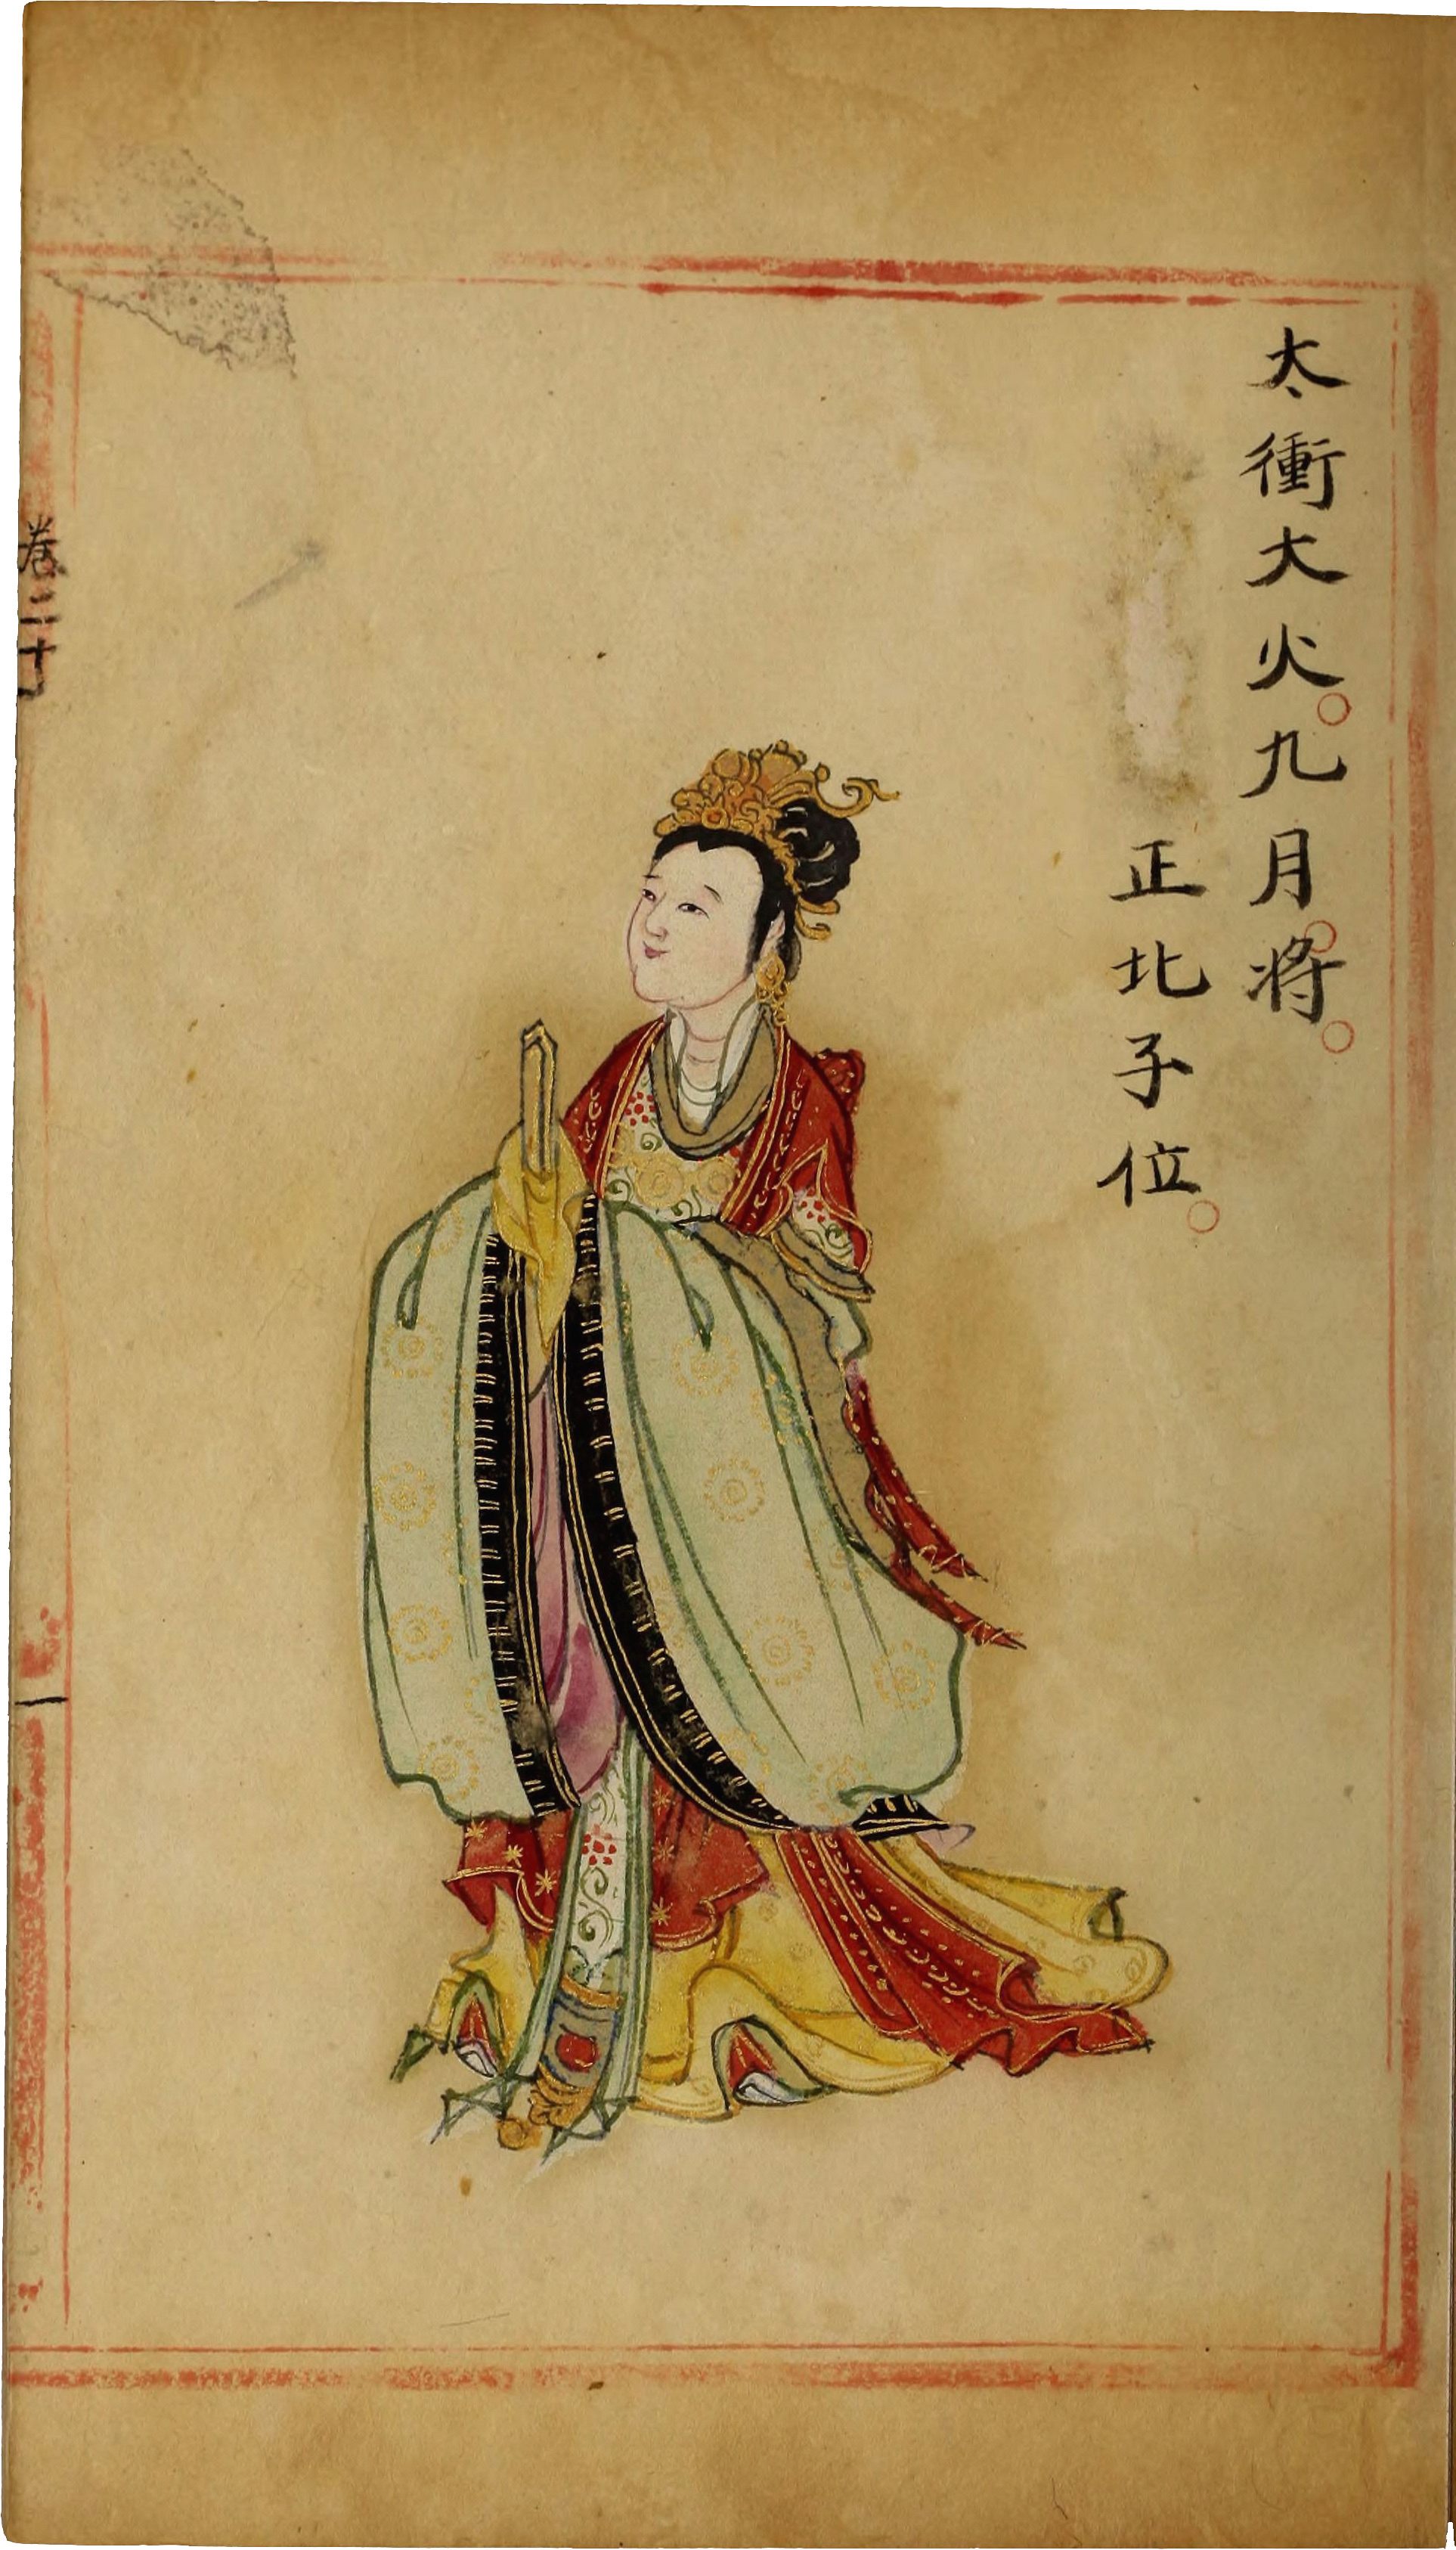 太衝大火。九月。将。
正北子位。
卷二十
一